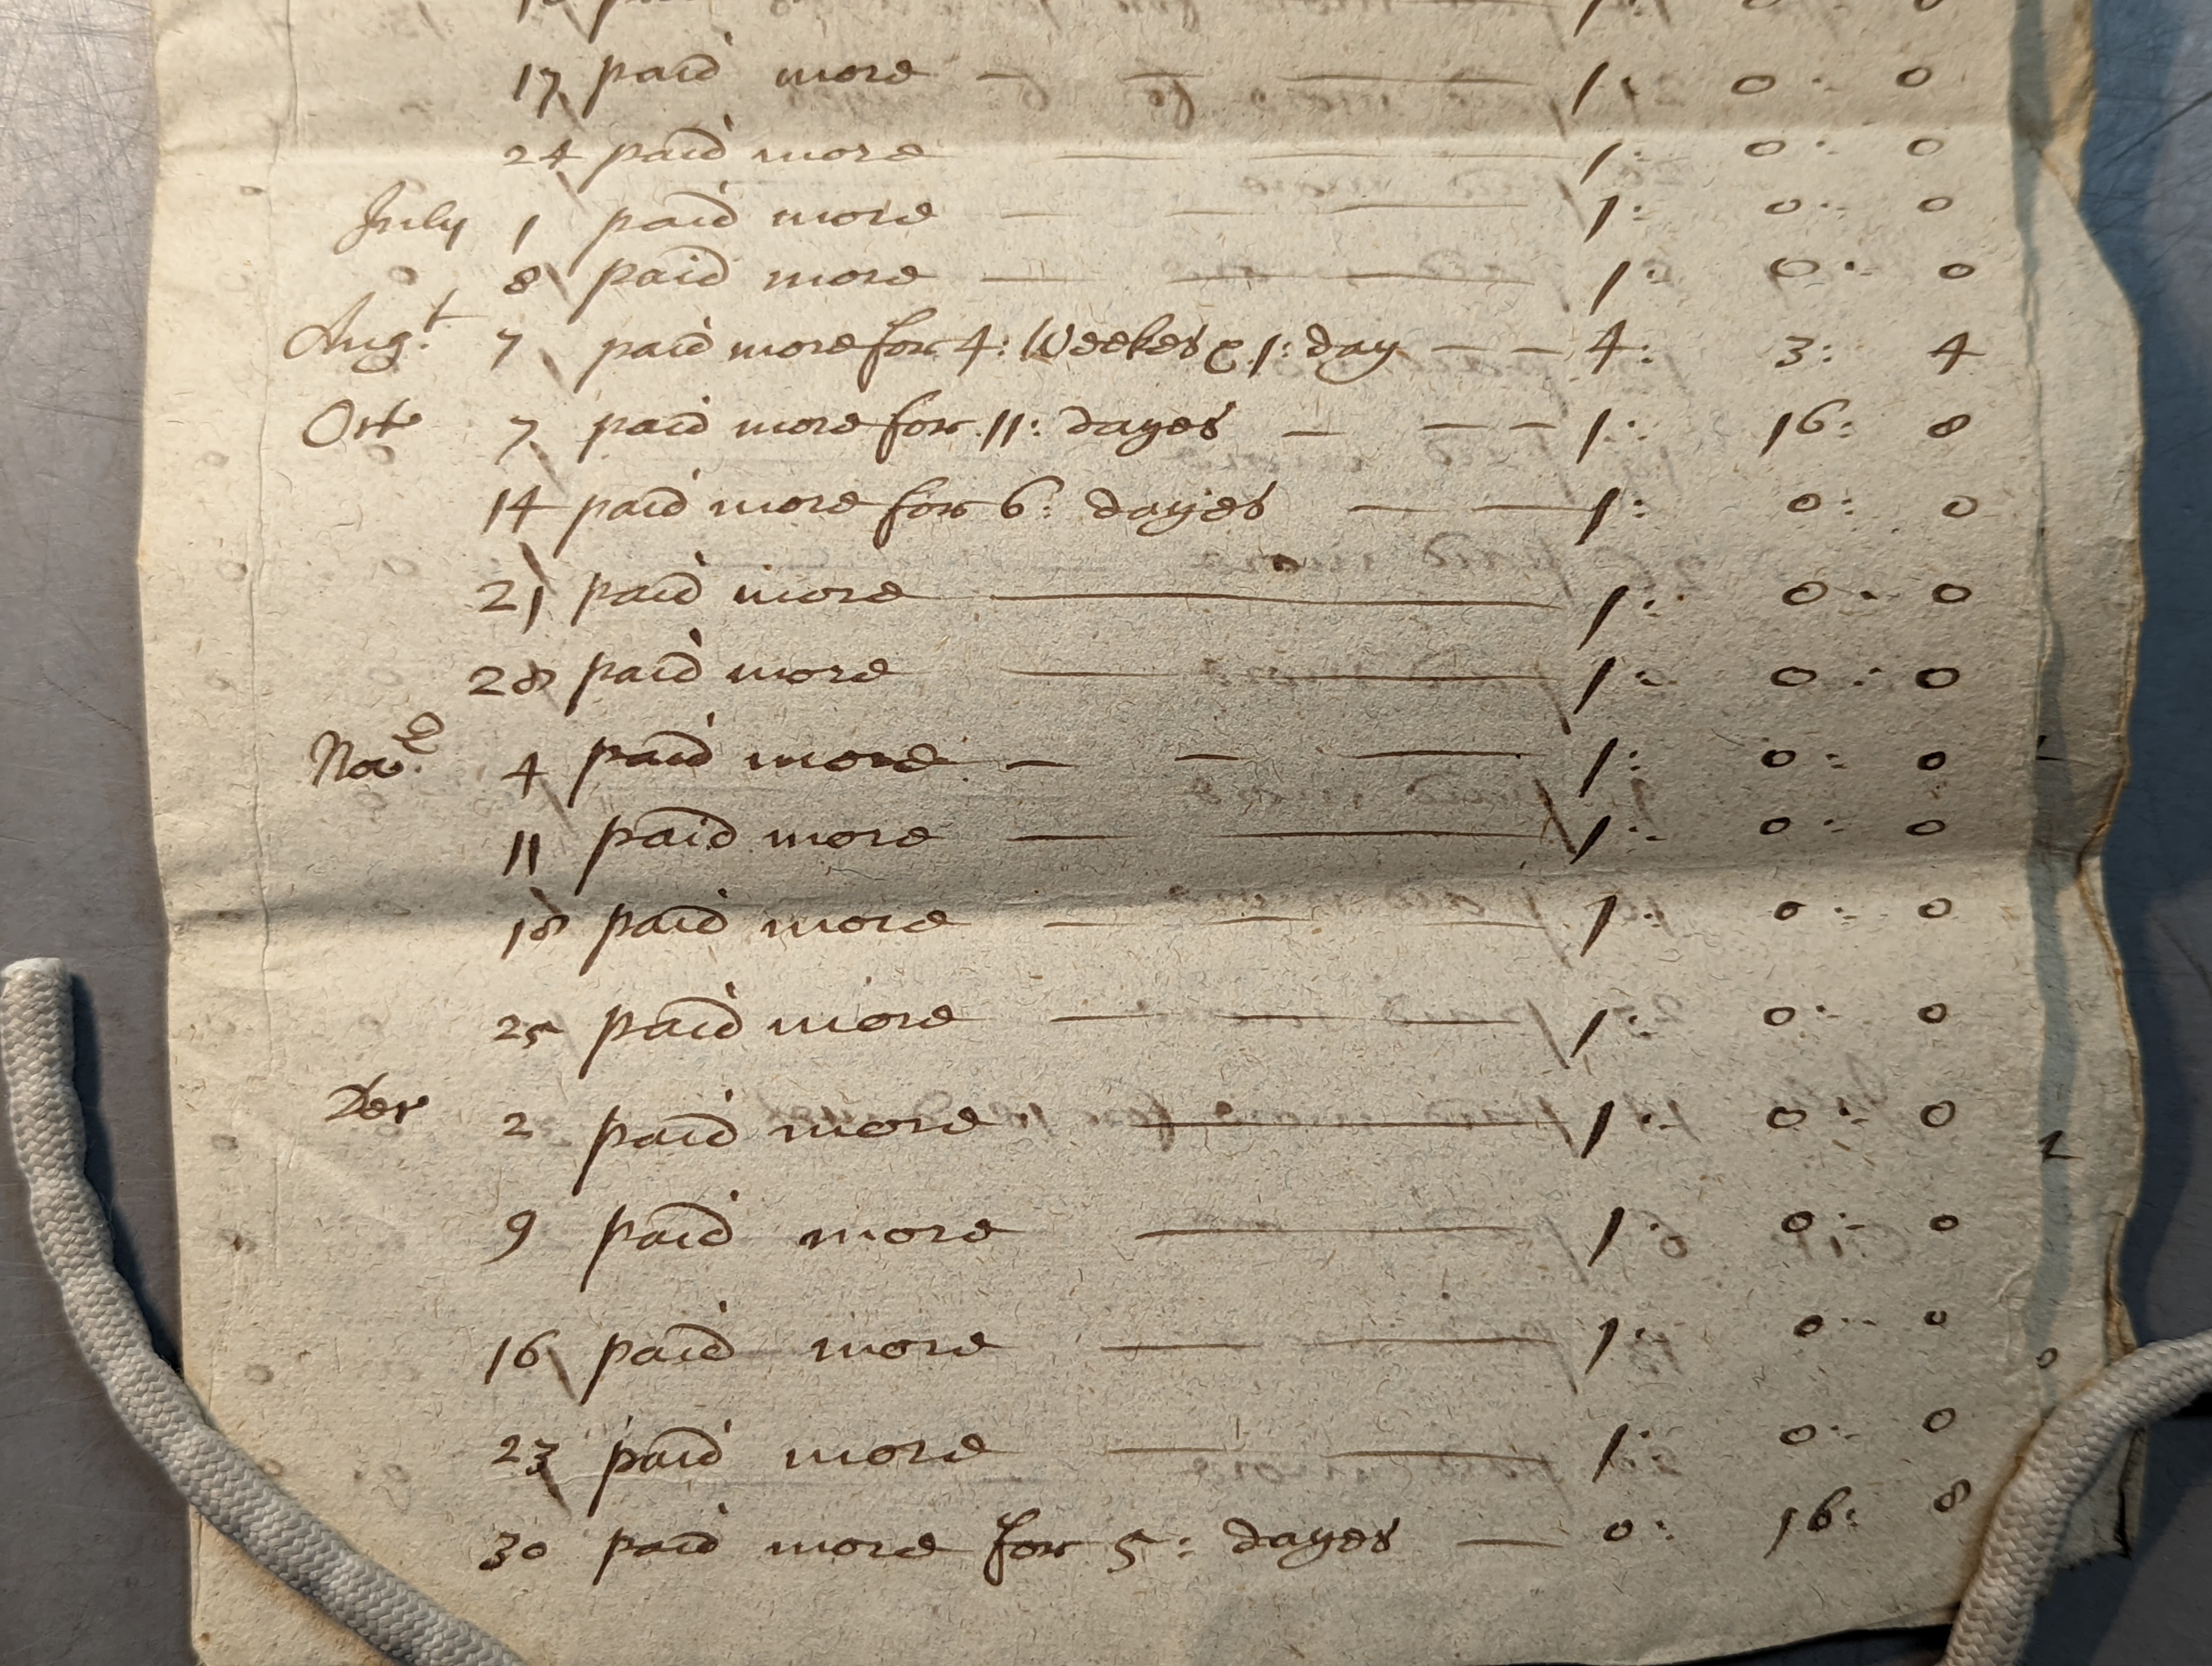 17 paid more — — — 1: 0: 0
24 paid more — — 1: 0: 0
July 1 paid more — — — 1: 0: 0
8 paid more — — — 1: 0: 0
Augt 7 paid more for 4: Weekes & 1: day — — 4: 3: 4
Octr 7 paid more for 11: dayes — — — 1: 16: 8
14 paid more for 6: dayes — — 1: 0: 0
21 paid more — 1: 0: 0
28 paid more — — 1: 0: 0
Nov 4 paid more — — — 1: 0: 0
11 paid more — — 1: 0: 0
18 paid more — — — 1: 0: 0
25 paid more — — — 1: 0: 0
Decr 2 paid more — 1: 0: 0
9 paid more — 1: 0: 0
16 paid more — — 1: 0: 0
23 paid more — — 1: 0: 0
30 paid more for 5: dayes — 0: 16: 8